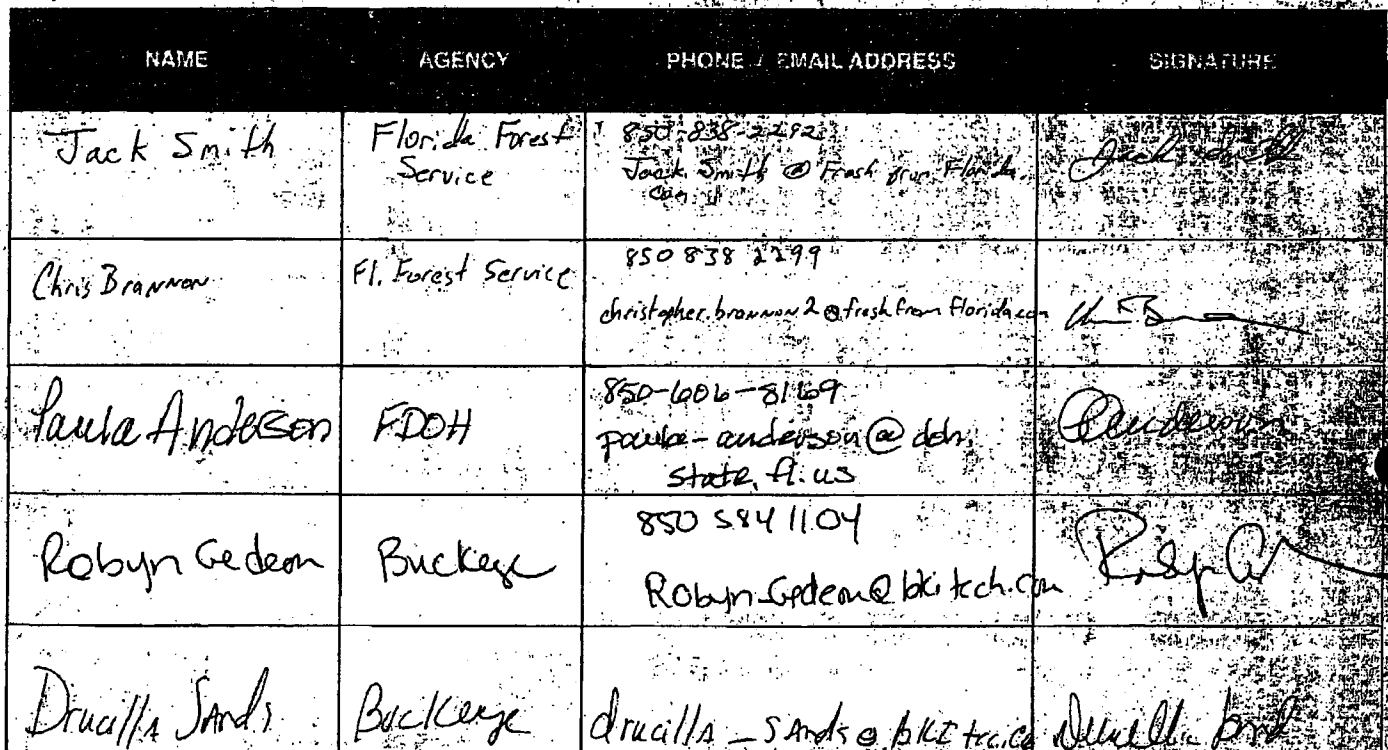 NAME AGENCY PHONE / EMAIL ADDRESS SIGNATURE
Jack Smith
Florida Forest
Service
850-838-2292
Jack Smith @ Fresh from Florida.
com
Jack Smith
Chris Brannon
Fl. Forest Service
850 838 2299
christopher.brannon2@freshfromflorida.com
Paula Anderson
FDOH
850-606-8169
paula-anderson@doh.
state.fl.us
PAnderson
Robyn Gedeon
Buckeye
850 584 1104
Robyn_Gedeon@bkitech.com
Drucilla Sands
Buckeye
drucilla_Sands@bkitec.co
Drucilla Sand